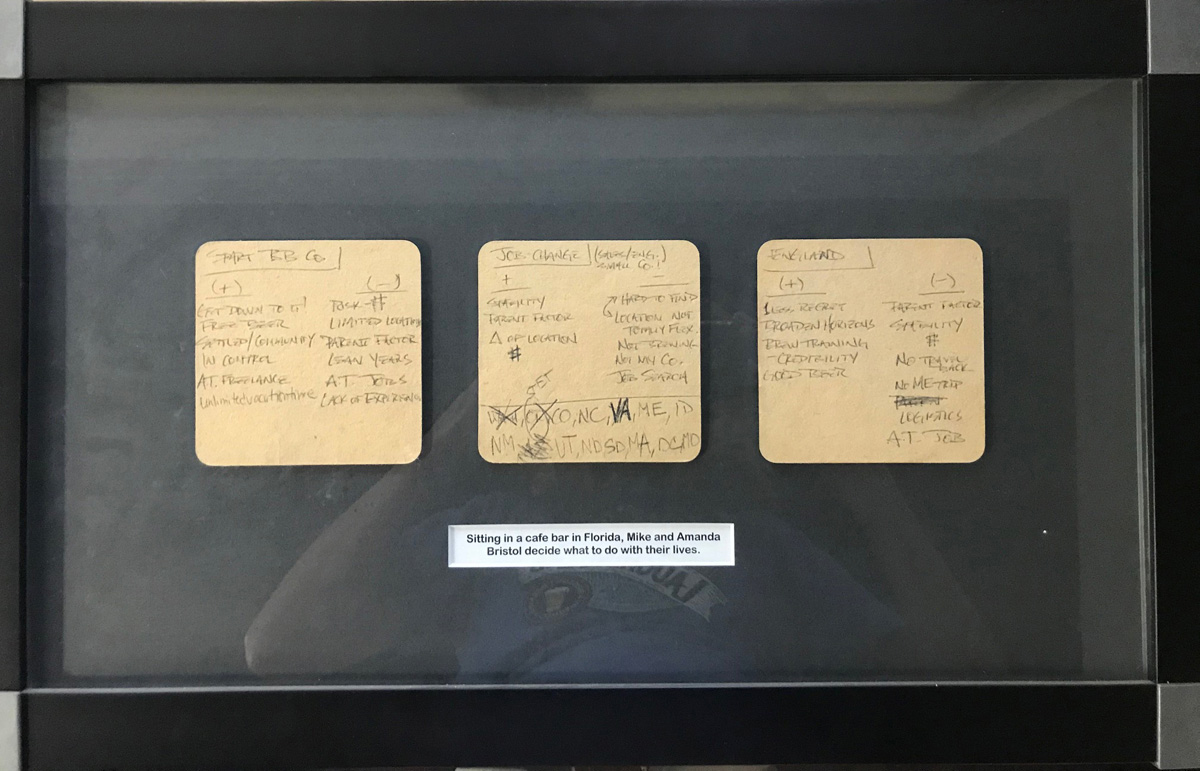 START BB CO
(+)
(-)
GET DOWN TO IT!
FREE BEER
SETTLED/COMMUNITY
IN CONTROL
A.T. FREELANCE
Unlimited vacation time
RISK - $
LIMITED LOCATION
PARENT FACTOR
LEAN YEARS
A.T. JOBS
LACK OF EXPERIENCE
JOB CHANGE (SALES/ENG.)
SMALL CO.!
+
-
STABILITY
PARENT FACTOR
Δ OF LOCATION
$
HARD TO FIND
LOCATION NOT
TOTALLY FLEX.
NOT BREWING
NOT MY CO.
JOB SEARCH
CO, NC, VA, ME, ID
NM, UT, ND, SD, MA, DC, MD
ENGLAND
(+)
(-)
LESS REGRET
BROADEN HORIZONS
BREW TRAINING
- CREDIBILITY
GOOD BEER
PARENT FACTOR
STABILITY
$
NO TRAVEL
BACK
NO ME TRIP
LOGISTICS
A.T. JOB
Sitting in a cafe bar in Florida, Mike and Amanda
Bristol decide what to do with their lives.